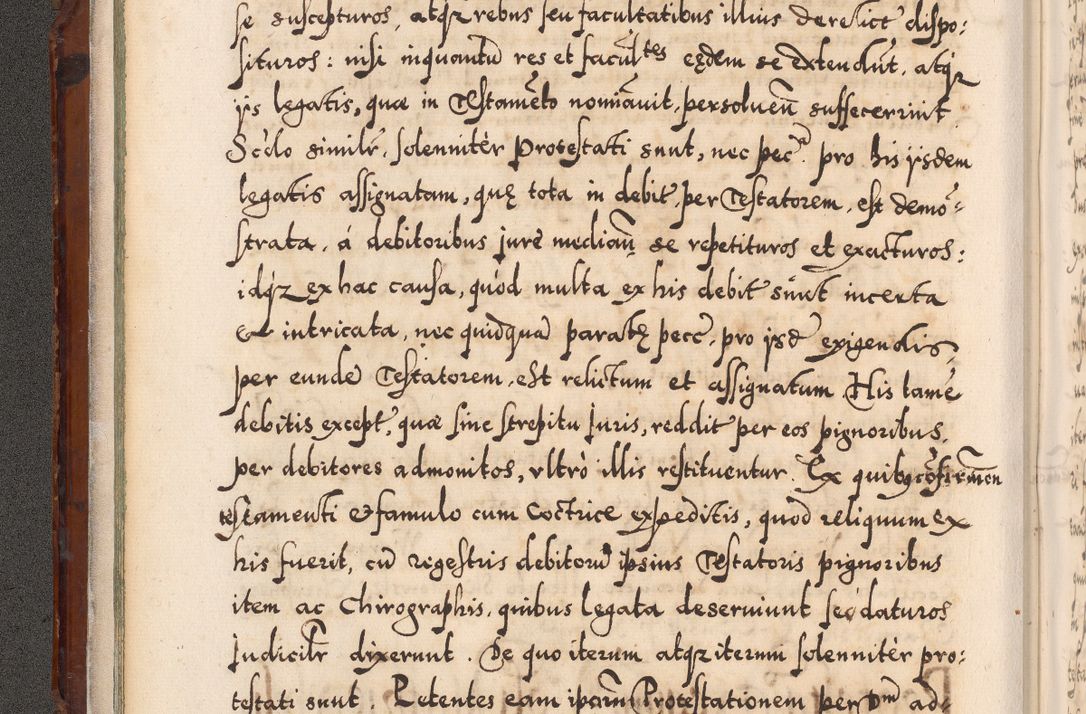 se suscepturos, atqz rebus seu facultatibus illius derelict dispo:
situros: nisi inquantũ res et facul^tes eędem se extendũt, atqz
ijs legatis, quæ in Testamẽto nomiãuit, persoluen̄ suffecerrint.
Scd̃o similr̃, solennitèr Protestati sunt, nec pec^a. pro his ijsdem
legatis assignatam, quę tota in debit, per Testatorem, est demõ=
strata, á debitoribus jure median̄ se repetituros et exacturos:
idqz ex hac causa, quòd multa ex his debit sint incerta
et intricata, nec quidquã paratę pecc̃, pro ijsd̃ exigendis,
per eundẽ Testatorem, est relictum et assignatum. His tamẽ
debitis except, quæ sine strepitu Juris, reddit per eos pignoribus,
per debitores admonitos, vltrò illis restituentur. Ex quibg cõfirmãon
testamenti et famulo cum Coctrice expeditis, quod reliquum ex
his fuerit, cũ regestris debitorũ ipsius Testatoris pignoribus
item ac Chirographis, quibus legata deseruiunt se daturos
Judicilr̃ dixerunt. De quo iterum atqz iterum solennitèr pro:
testati sunt. Petentes eam ipsam Protestationem per D^m ad-